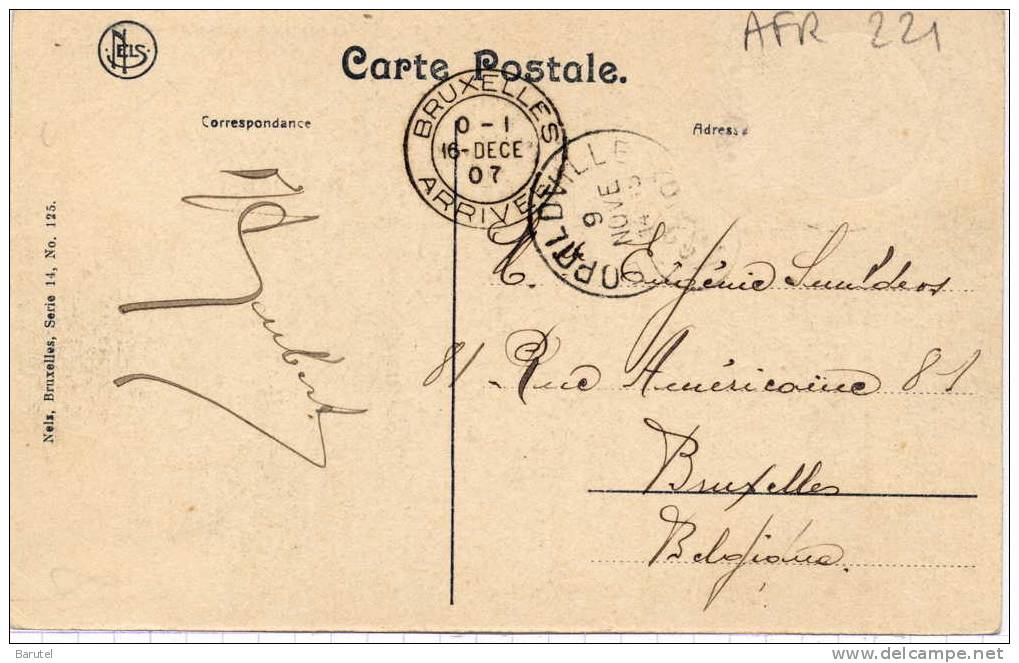 NELS
AFR 221
Carte Postale.
Correspondance
Adresse
BRUXELLES
0-1
16-DECE
07
ARRIVEE
LEOPOLDVILLE
9
NOVE
Nels, Bruxelles, Serie 14, No. 125.
M. Eugénie
81 Rue Américaine 81
Bruxelles
Belgique
Barutel
www.delcampe.net